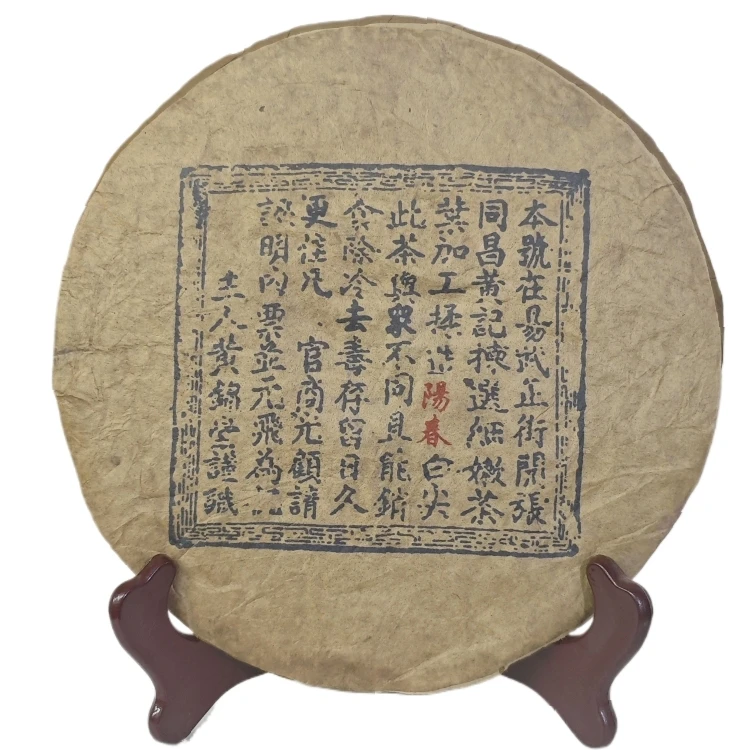 本號在易武正街開張
同昌黃記揀選細嫩茶
葉加工揉造陽春白尖
此茶與眾不同具能銷
食除冷去毒存留日久
更佳凡 官商光顧請
認明內票並元飛為記
主人黃錦堂謹識